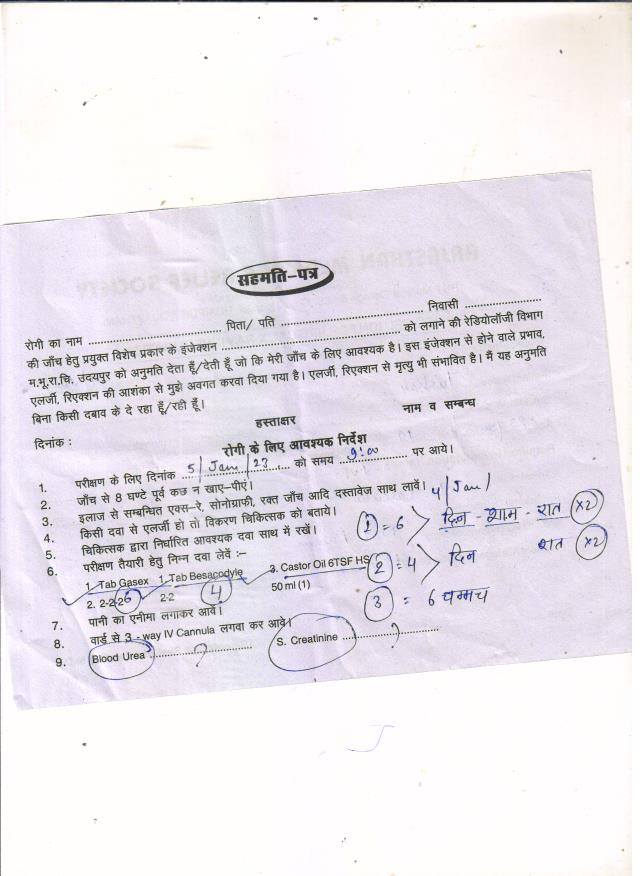 सहमति-पत्र
रोगी का नाम ........................................ पिता/ पति ........................................ निवासी ........................
की जाँच हेतु प्रयुक्त विशेष प्रकार के इंजेक्शन ........................................ को लगाने की रेडियोलॉजी विभाग
म.भू.रा.चि. उदयपुर को अनुमति देता हूँ/देती हूँ जो कि मेरी जाँच के लिए आवश्यक है। इस इंजेक्शन से होने वाले प्रभाव,
एलर्जी, रिएक्शन की आशंका से मुझे अवगत करवा दिया गया है। एलर्जी, रिएक्शन से मृत्यु भी संभावित है। मैं यह अनुमति
बिना किसी दबाव के दे रहा हूँ/रही हूँ।
दिनांक : हस्ताक्षर नाम व सम्बन्ध
रोगी के लिए आवश्यक निर्देश
1. परीक्षण के लिए दिनांक 5/Jan/23 को समय 9:00 पर आये।
2. जाँच से 8 घण्टे पूर्व कछ न खाए-पीएं।
3. इलाज से सम्बन्धित एक्स-रे, सोनोग्राफी, रक्त जाँच आदि दस्तावेज साथ लावें। 4/Jan/
4. किसी दवा से एलर्जी हो तो विकरण चिकित्सक को बताये।
5. चिकित्सक द्वारा निर्धारित आवश्यक दवा साथ में रखें। 1 = 6 > दिन - शाम - रात (x2)
6. परीक्षण तैयारी हेतु निम्न दवा लेवें :-
1. Tab Gasex 1. Tab Besacodyle 3. Castor Oil 6TSF HS 2 = 4 > दिन रात (x2)
2. 2-2-2 6 2-2 4 50 ml (1)
3 = 6 चम्मच
7. पानी का एनीमा लगाकर आवें।
8. वार्ड से 3 - way IV Cannula लगवा कर आवे।
9. Blood Urea ........?........ S. Creatinine ........?........